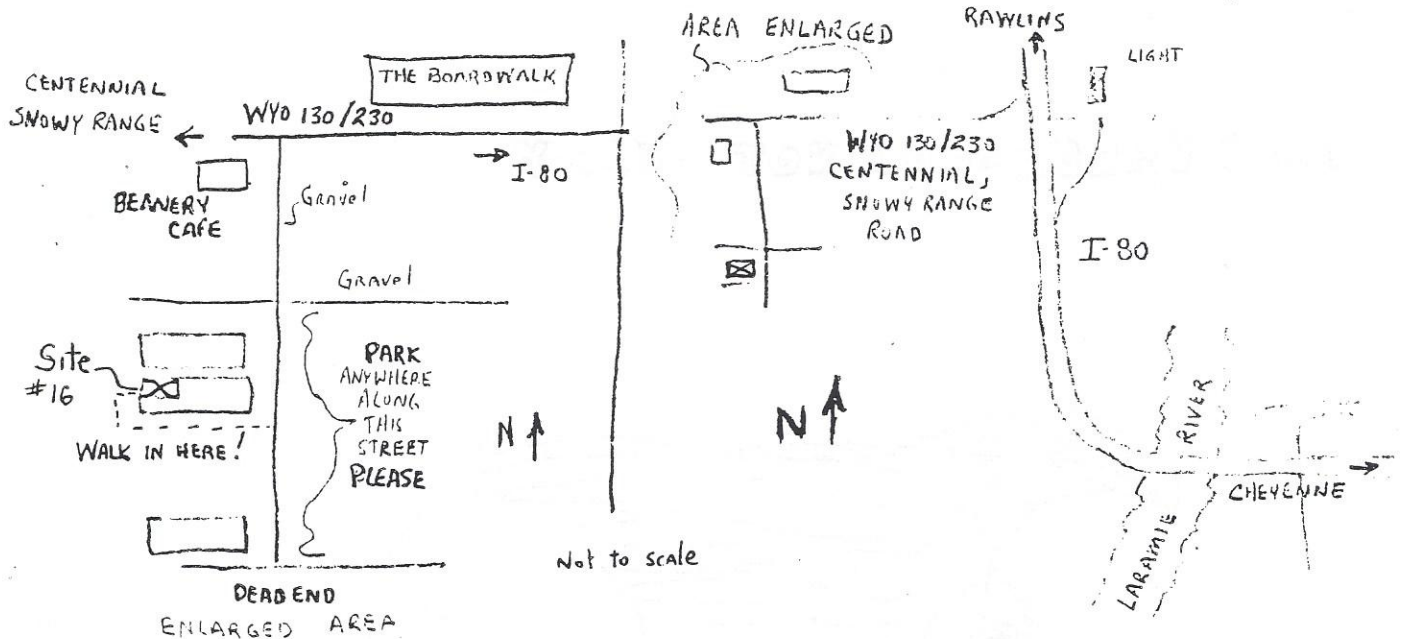 CENTENNIAL
SNOWY RANGE
THE BOARDWALK
WYO 130/230
I-80
BEANERY
CAFE
Gravel
Gravel
Site
#16
WALK IN HERE!
PARK
ANYWHERE
ALONG
THIS
STREET
PLEASE
N
DEAD END
ENLARGED AREA
Not to scale
AREA ENLARGED
RAWLINS
LIGHT
WYO 130/230
CENTENNIAL,
SNOWY RANGE
ROAD
I-80
N
RIVER
LARAMIE
CHEYENNE